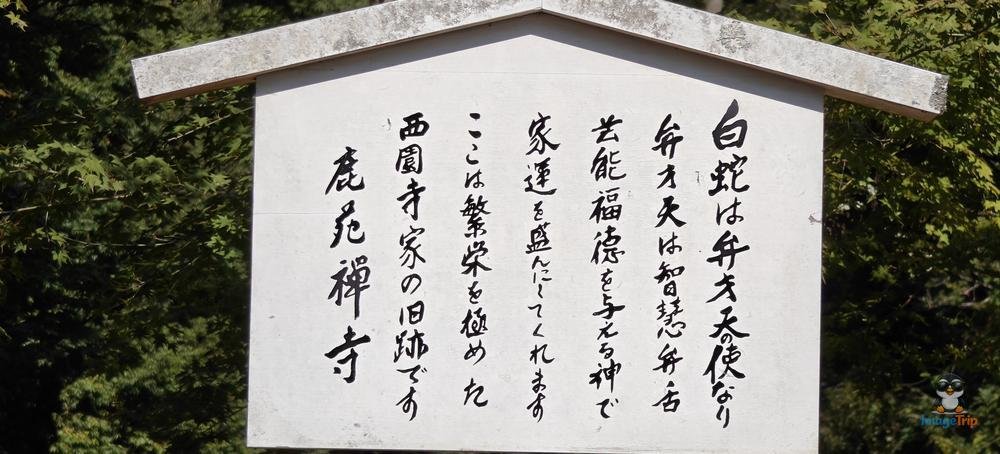 白蛇は弁才天の使なり
弁才天は智慧弁舌
芸能福德を与える神で
家運を盛んにしてくれます
ここは繁栄を極めた
西園寺家の旧跡です
鹿苑禅寺
ImageTrip